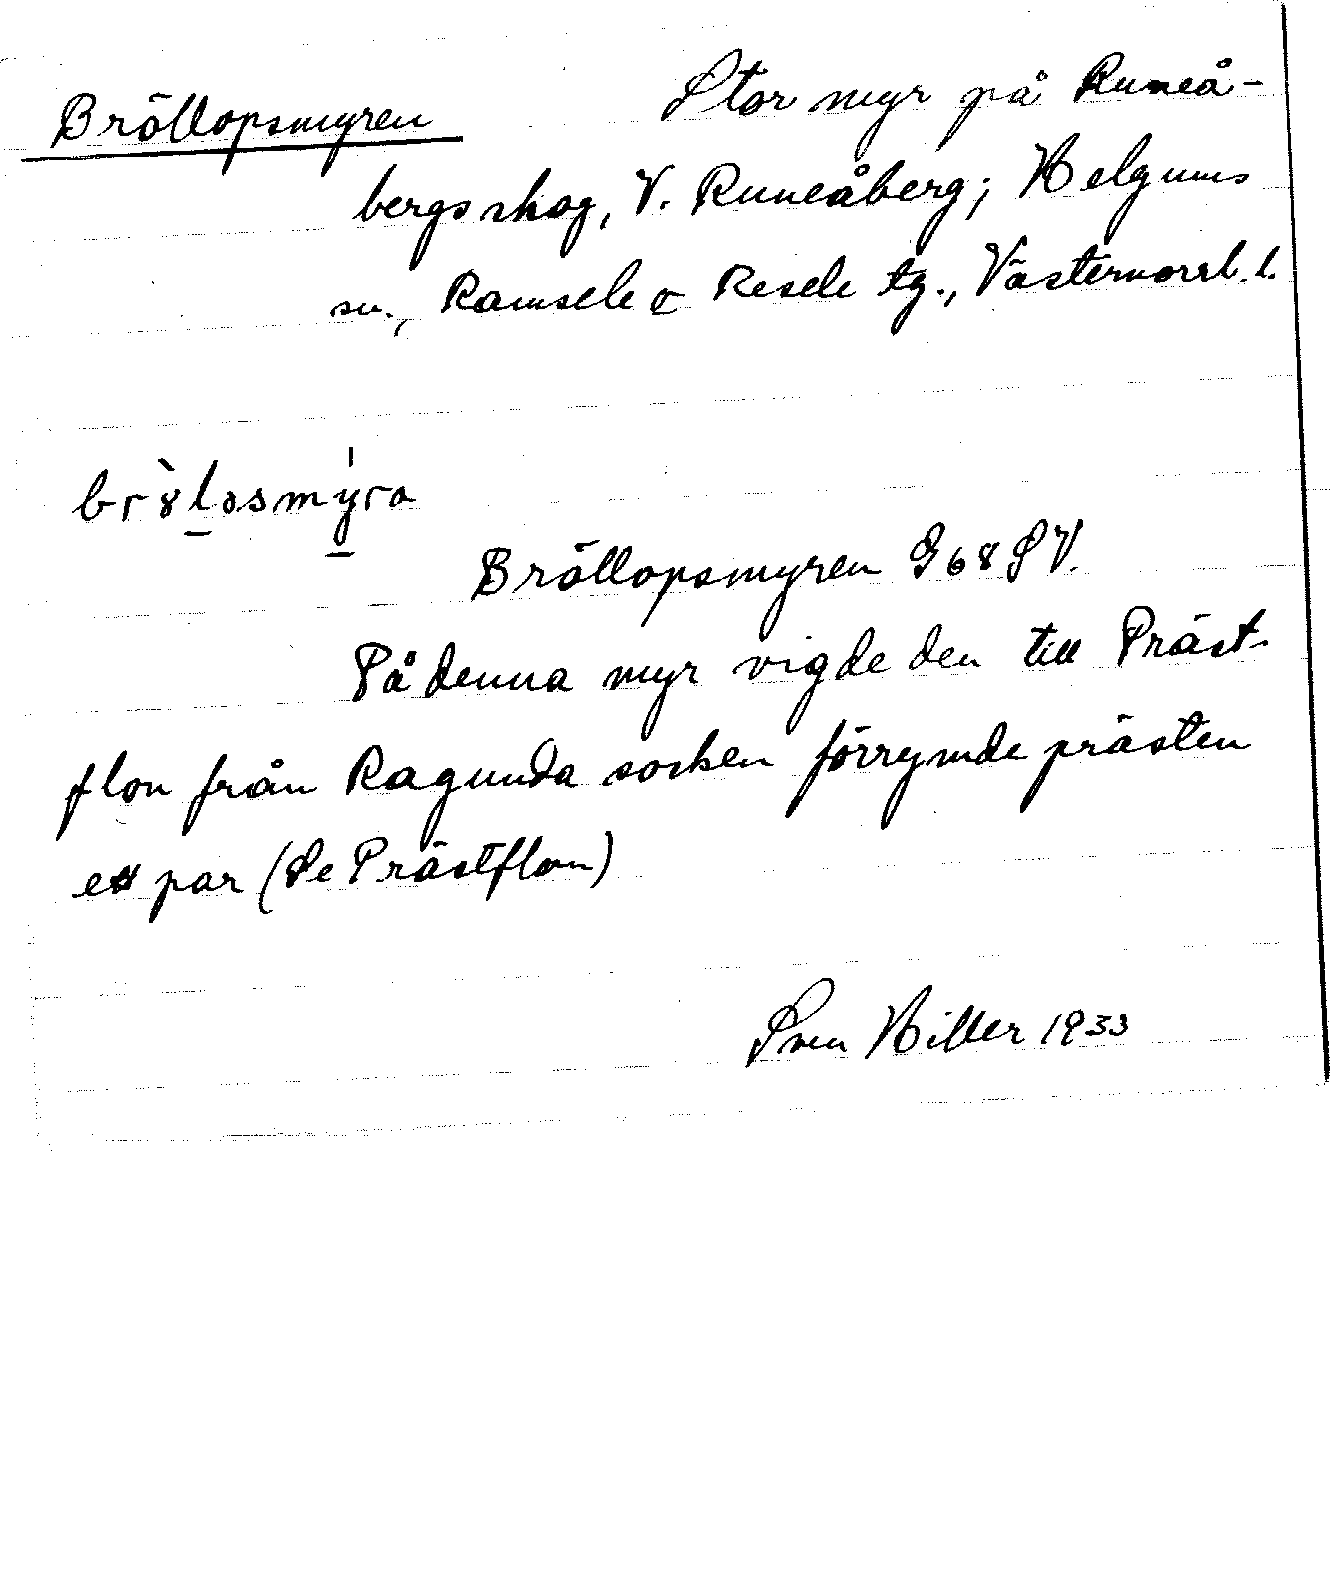 Bröllopsmyren Stor myr på Runeå-
bergs skog, V. Runeåberg; Helgums
sn., Ramsele o Resele tg., Västernorrl. l.
brɤ̀ləsmýra
Bröllopsmyren G68SV.
På denna myr vigde den till Präst-
flon från Ragunda socken förrymde prästen
ett par (Se Prästflon)
Sven Hiller 1933